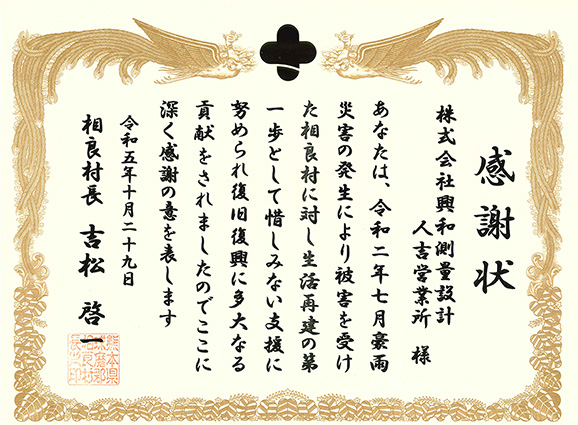 感謝状
株式会社興和測量設計
人吉営業所 様
あなたは、令和二年七月豪雨
災害の発生により被害を受け
た相良村に対し生活再建の第
一歩として惜しみない支援に
努められ復旧復興に多大なる
貢献をされましたのでここに
深く感謝の意を表します
令和五年十月二十九日
相良村長 吉松 啓一
熊本県
球磨郡
相良村
長之印